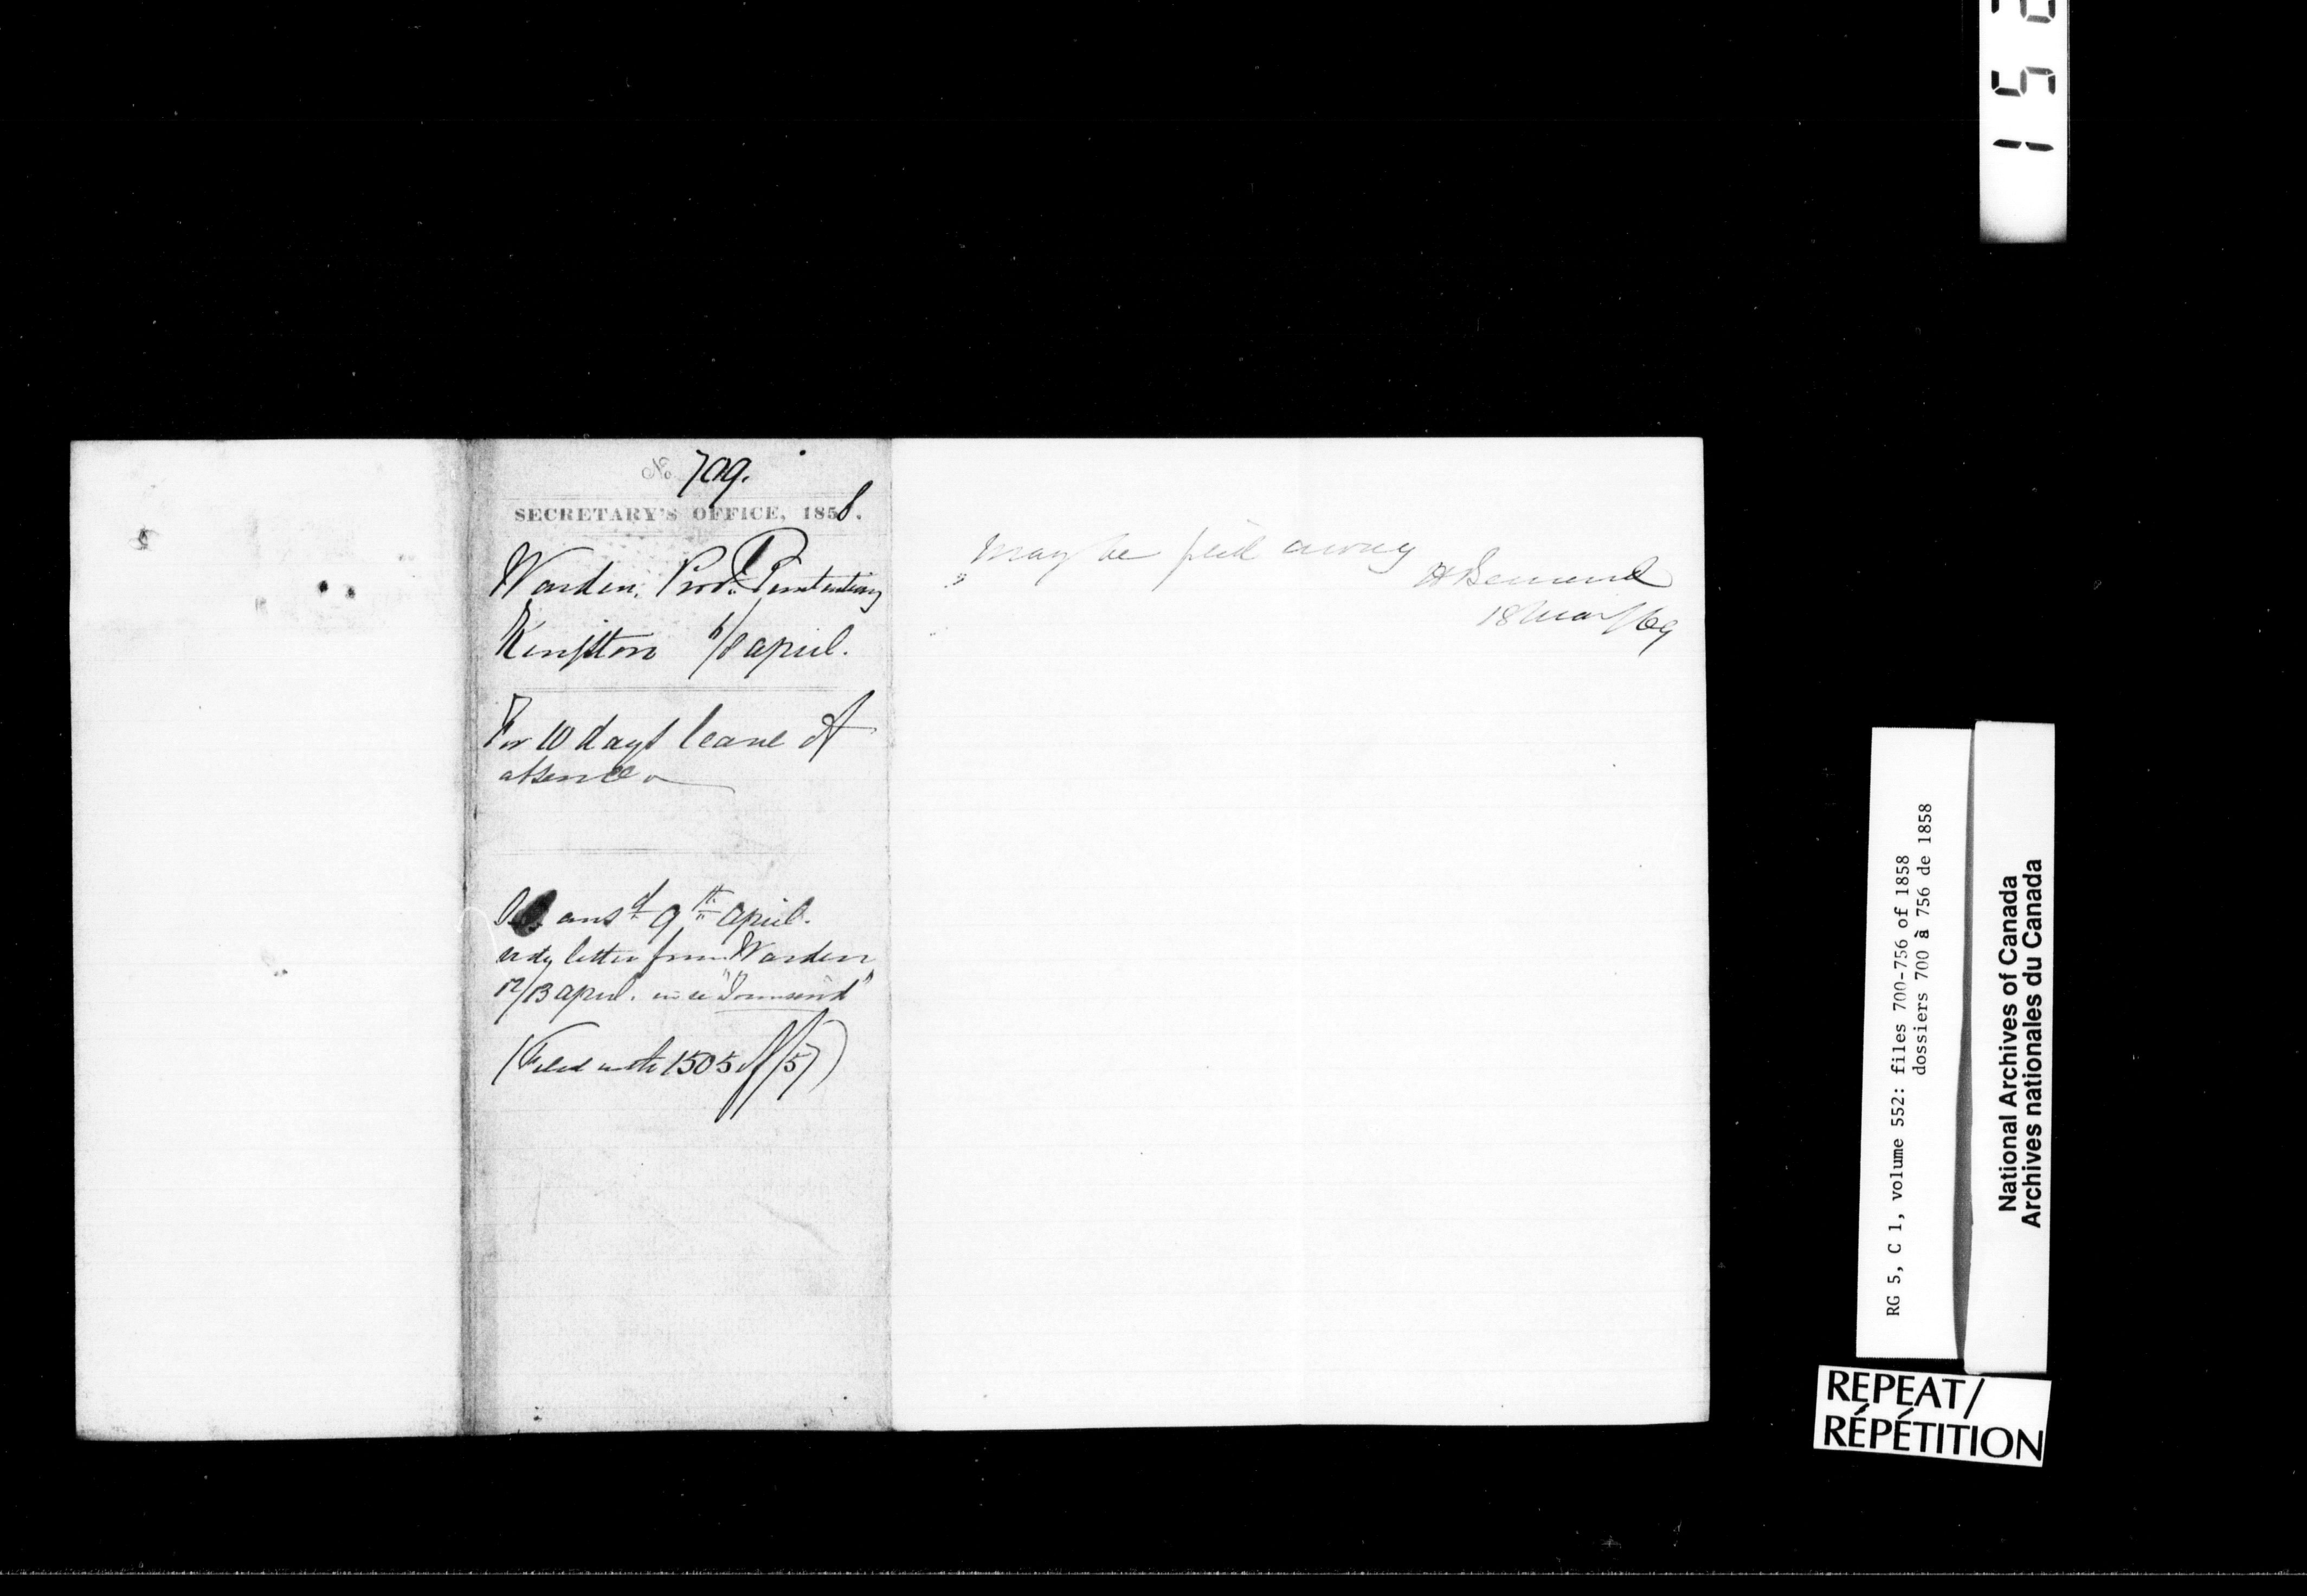 No 709.
SECRETARY'S OFFICE, 1858.
Warden. Prov:l Penitentiary
Kingston 6/8 april.
For 10 days leave of
absence
ansd 9th April.
letter from Warden
12/13 april. in re "Townsend"
(Filed with 1505 of/57)
may be put away
18 Mar/69
RG 5, C 1, volume 552: files 700-756 of 1858
dossiers 700 à 756 de 1858
National Archives of Canada
Archives nationales du Canada
REPEAT/
RÉPÉTITION